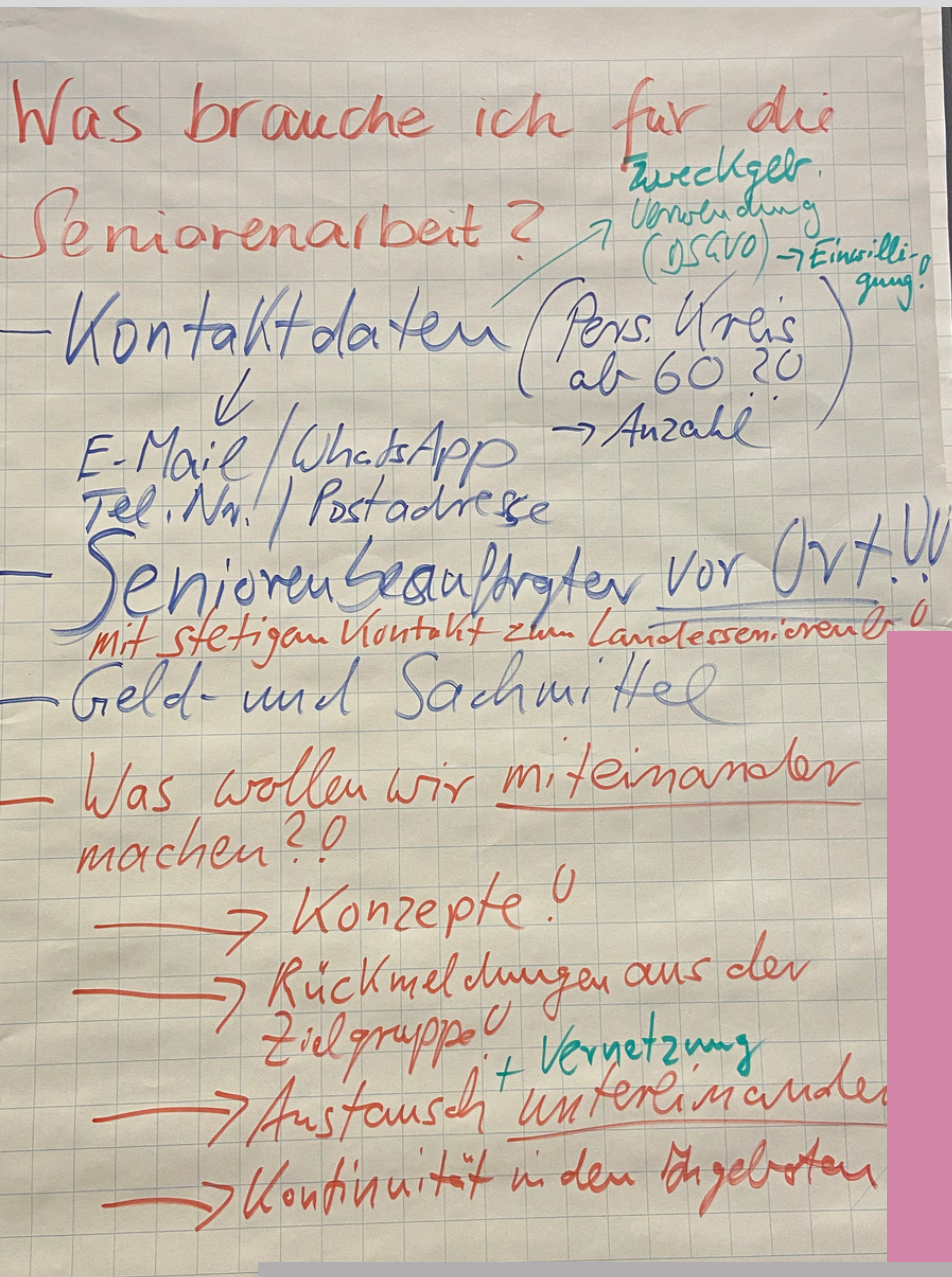 Was brauche ich für die
Seniorenarbeit?
Zweckgeb.
Verwendung
(DSGVO) → Einwilli-
gung!
- Kontaktdaten (Pers. Kreis
ab 60 ?!)
→ Anzahl
E-Mail / WhatsApp
Tel. Nr. / Postadresse
- Seniorenbeauftragter vor Ort!!
mit stetigem Kontakt zum Landesseniorenb!
- Geld- und Sachmittel
- Was wollen wir miteinander
machen?!
→ Konzepte!
→ Rückmeldungen aus der
Zielgruppe!
+ Vernetzung
→ Austausch untereinander
→ Kontinuität in den Angeboten